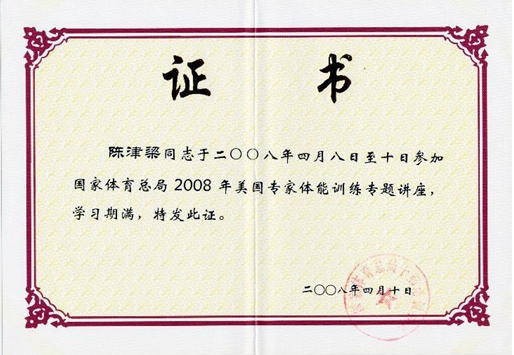 证 书
陈津梁同志于二〇〇八年四月八日至十日参加
国家体育总局2008年美国专家体能训练专题讲座，
学习期满，特发此证。
二〇〇八年四月十日